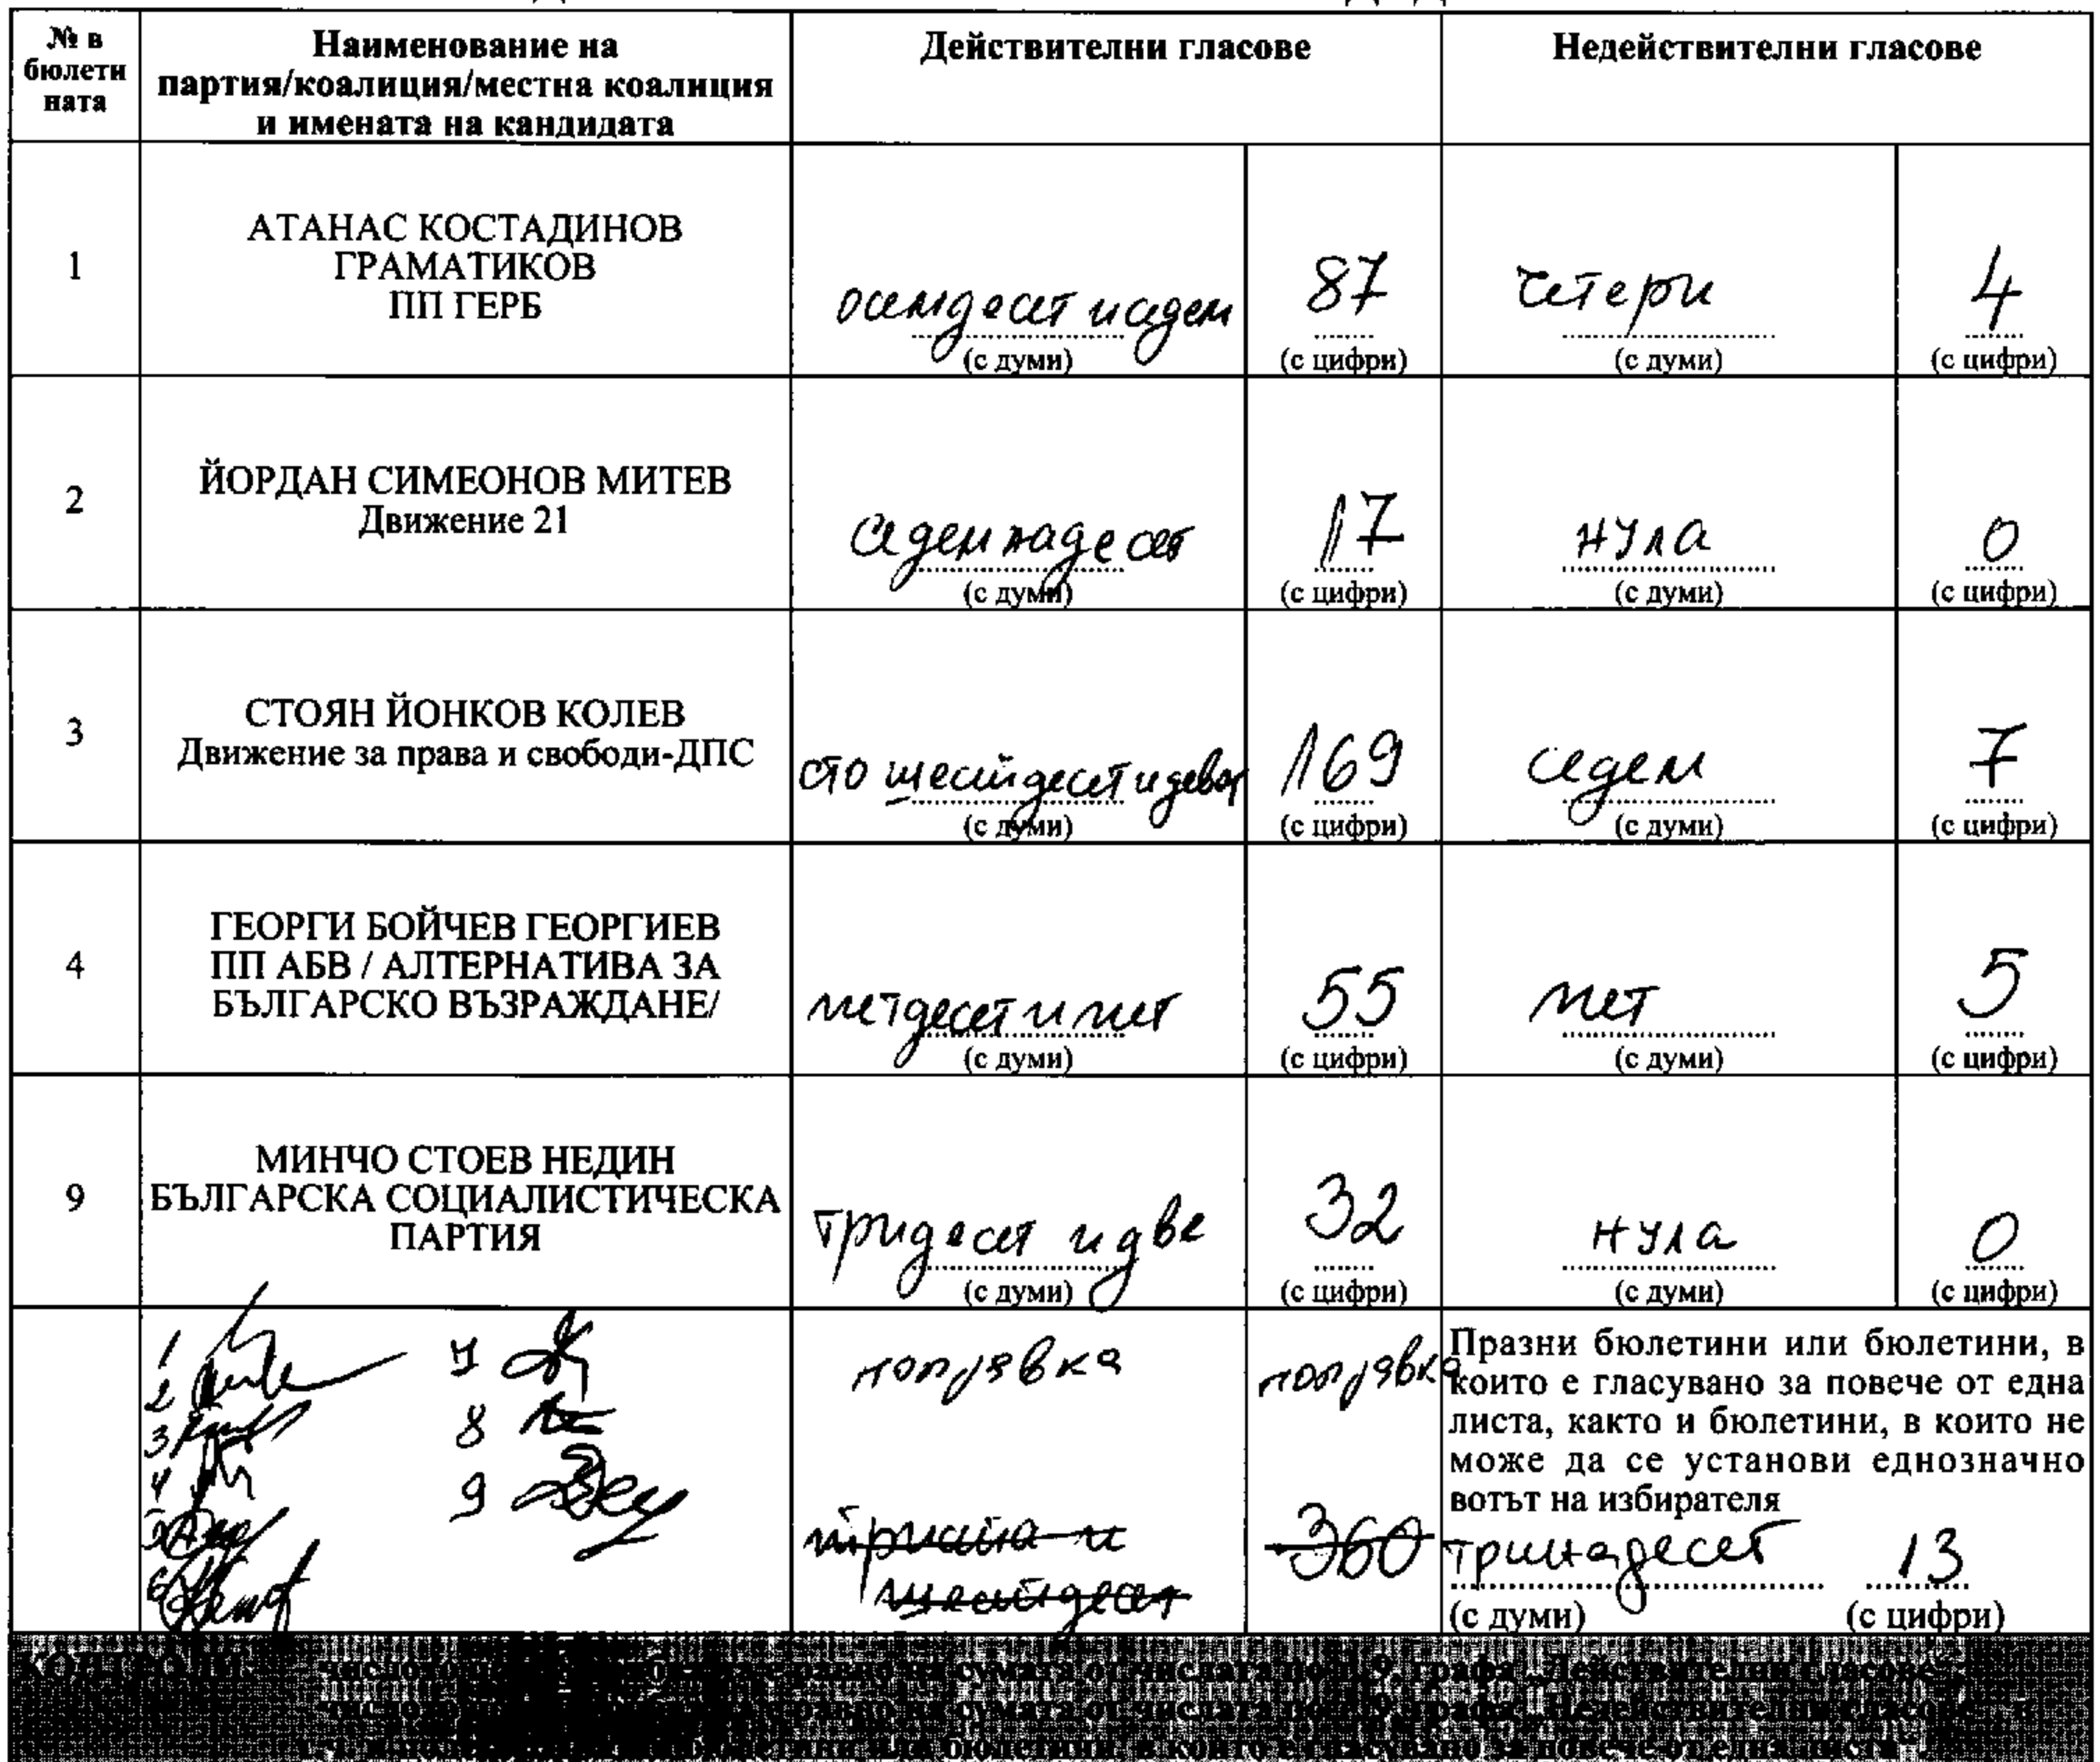 № в
бюлети
ната
Наименование на
партия/коалиция/местна коалиция
и имената на кандидата
Действителни гласове
Недействителни гласове
1
АТАНАС КОСТАДИНОВ
ГРАМАТИКОВ
ПП ГЕРБ
осемдесет и седем
(с думи)
87
(с цифри)
четери
(с думи)
4
(с цифри)
2
ЙОРДАН СИМЕОНОВ МИТЕВ
Движение 21
седемнадесет
(с думи)
17
(с цифри)
нула
(с думи)
0
(с цифри)
3
СТОЯН ЙОНКОВ КОЛЕВ
Движение за права и свободи-ДПС
сто шестдесет и девет
(с думи)
169
(с цифри)
седем
(с думи)
7
(с цифри)
4
ГЕОРГИ БОЙЧЕВ ГЕОРГИЕВ
ПП АБВ / АЛТЕРНАТИВА ЗА
БЪЛГАРСКО ВЪЗРАЖДАНЕ/
петдесет и пет
(с думи)
55
(с цифри)
пет
(с думи)
5
(с цифри)
9
МИНЧО СТОЕВ НЕДИН
БЪЛГАРСКА СОЦИАЛИСТИЧЕСКА
ПАРТИЯ
тридесет и две
(с думи)
32
(с цифри)
нула
(с думи)
0
(с цифри)
1
2
3
4
5
6
7
8
9
поправка
триста и
шестдесет
поправка
360
Празни бюлетини или бюлетини, в
които е гласувано за повече от една
листа, както и бюлетини, в които не
може да се установи еднозначно
вотът на избирателя
тринадесет 13
(с думи) (с цифри)
равно на сумата от числата по т. 9, графа „Действителни гласове“
равно на сумата от числата по т. 9, графа „Недействителни гласове“
бюлетини, в които е гласувано за повече от една листа